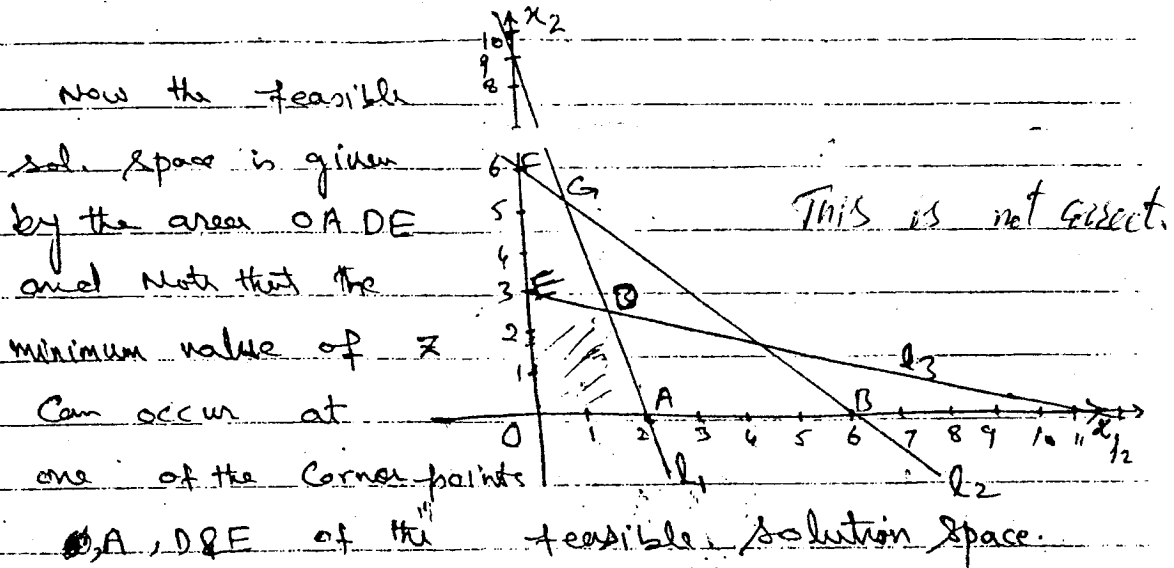 x₂
10
9
8
Now the feasible
sol. space is given
by the area OADE
and Note that the
minimum value of z
Can occur at
one of the Corner points
O, A, D & E of the feasible solution space.
This is not correct.
6 F
G
5
4
3 E
D
2
1
l₃
A
B
O 1 2 3 4 5 6 7 8 9 10 11 12
x₁
l₁
l₂